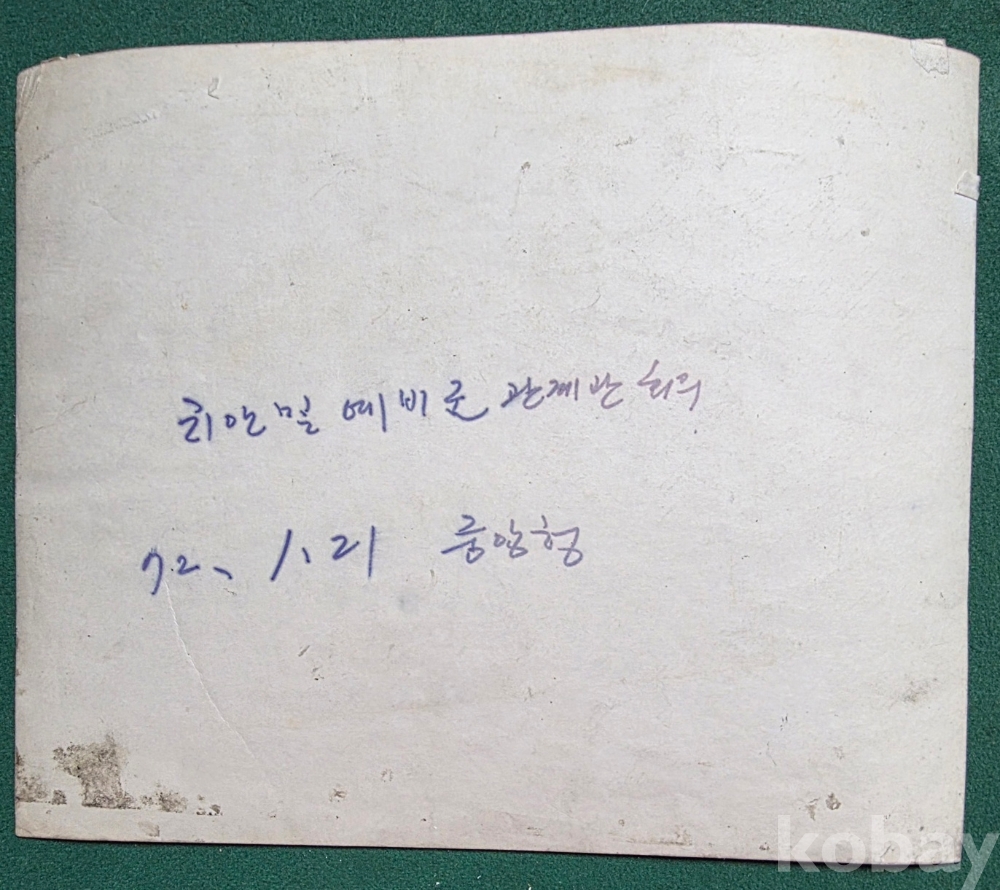 치안 및 예비군 관계관 회의
72. 1. 21 중앙청
kobay